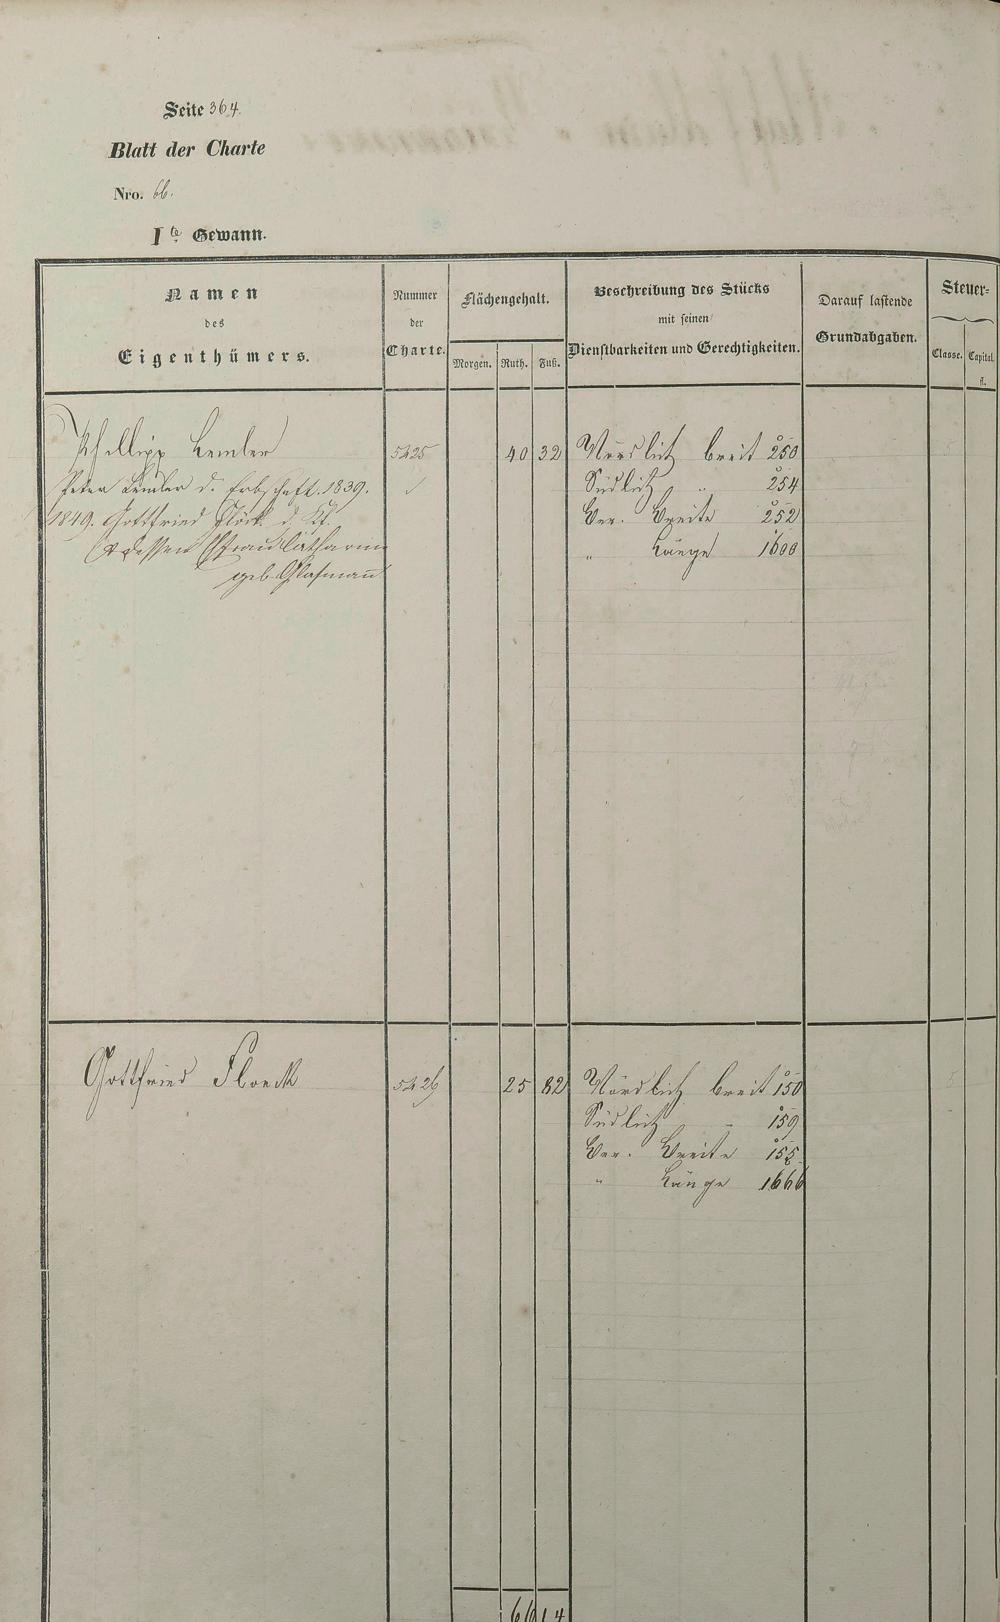 Seite 364.
Blatt der Charte
Nro. 66.
Ite Gewann.
Namen
des
Eigenthümers.
Nummer
der
Charte.
Flächengehalt.
Morgen. Ruth. Fuß.
Beschreibung des Stücks
mit seinen
Dienstbarkeiten und Gerechtigkeiten.
Darauf lastende
Grundabgaben.
Steuer=
Classe. Capital.
fl.
Phillipp Lemler 5425 40 32 Nördlich breit 250
Peter Lemler d. Erbschaft. 1839. Südlich " 254
1849. Gottfried Flöck d. Kf. Ver. Breite 252
dessen Catharina " Länge 1600
geb.
Gottfried Floeck 5426 25 82 Nördlich breit 150
Südlich " 159
Ver. Breite 155
" Länge 1666
66 14